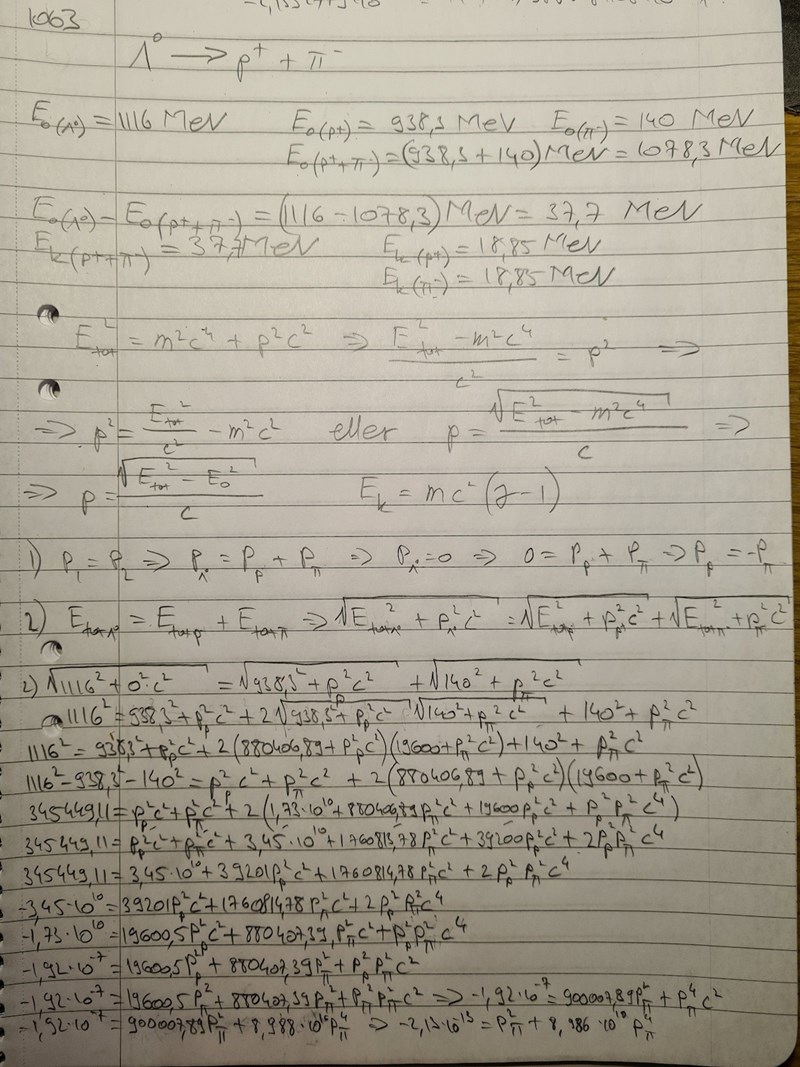 1063
Λ⁰ → p⁺ + π⁻
E₀(Λ⁰) = 1116 MeV E₀(p+) = 938,3 MeV E₀(π⁻) = 140 MeV
E₀(p⁺+π) = (938,3 + 140) MeV = 1078,3 MeV
E₀(Λ⁰) - E₀(p⁺+π⁻) = (1116 - 1078,3) MeV = 37,7 MeV
Eₖ(p⁺+π⁻) = 37,7 MeV Eₖ(p+) = 18,85 MeV
Eₖ(π⁻) = 18,85 MeV
E_tot² = m²c⁴ + p²c² ⇒ (E_tot² - m²c⁴)/c² = p² ⇒
⇒ p² = E_tot²/c² - m²c² eller p = √(E_tot² - m²c⁴)/c ⇒
⇒ p = √(E_tot² - E₀²)/c Eₖ = mc²(γ-1)
1) P₁ = P₂ ⇒ P_Λ = P_p + P_π ⇒ P_Λ = 0 ⇒ 0 = P_p + P_π ⇒ P_p = -P_π
2) E_totΛ = E_totp + E_totπ ⇒ √(E_totΛ² + p_Λ²c²) = √(E_totp² + p_p²c²) + √(E_totπ² + p_π²c²)
2) √(1116² + 0²c²) = √(938,3² + p_p²c²) + √(140² + p_π²c²)
1116² = 938,3² + p_p²c² + 2√(938,3² + p_p²c²) √(140² + p_π²c²) + 140² + p_π²c²
1116² = 938,3² + p_p²c² + 2(880406,89 + p_p²c²)(19600 + p_π²c²) + 140² + p_π²c²
1116² - 938,3² - 140² = p_p²c² + p_π²c² + 2(880406,89 + p_p²c²)(19600 + p_π²c²)
345449,11 = p_p²c² + p_π²c² + 2(1,73·10¹⁰ + 880406,89p_π²c² + 19600p_p²c² + p_p²p_π²c⁴)
345449,11 = p_p²c² + p_π²c² + 3,45·10¹⁰ + 1760813,78p_π²c² + 39200p_p²c² + 2p_p²p_π²c⁴
345449,11 = 3,45·10¹⁰ + 39201p_p²c² + 1760814,78p_π²c² + 2p_p²p_π²c⁴
-3,45·10¹⁰ = 39201p_p²c² + 1760814,78p_π²c² + 2p_p²p_π²c⁴
-1,73·10¹⁰ = 19600,5p_p²c² + 880407,39p_π²c² + p_p²p_π²c⁴
-1,92·10⁻⁷ = 19600,5p_p² + 880407,39p_π² + p_p²p_π²c²
-1,92·10⁻⁷ = 19600,5p_π² + 880407,39p_π² + p_π²p_π²c² ⇒ -1,92·10⁻⁷ = 900007,89p_π² + p_π⁴c²
-1,92·10⁻⁷ = 900007,89p_π² + 8,988·10¹⁶p_π⁴ ⇒ -2,13·10⁻¹³ = p_π² + 8,986·10¹⁰p_π⁴